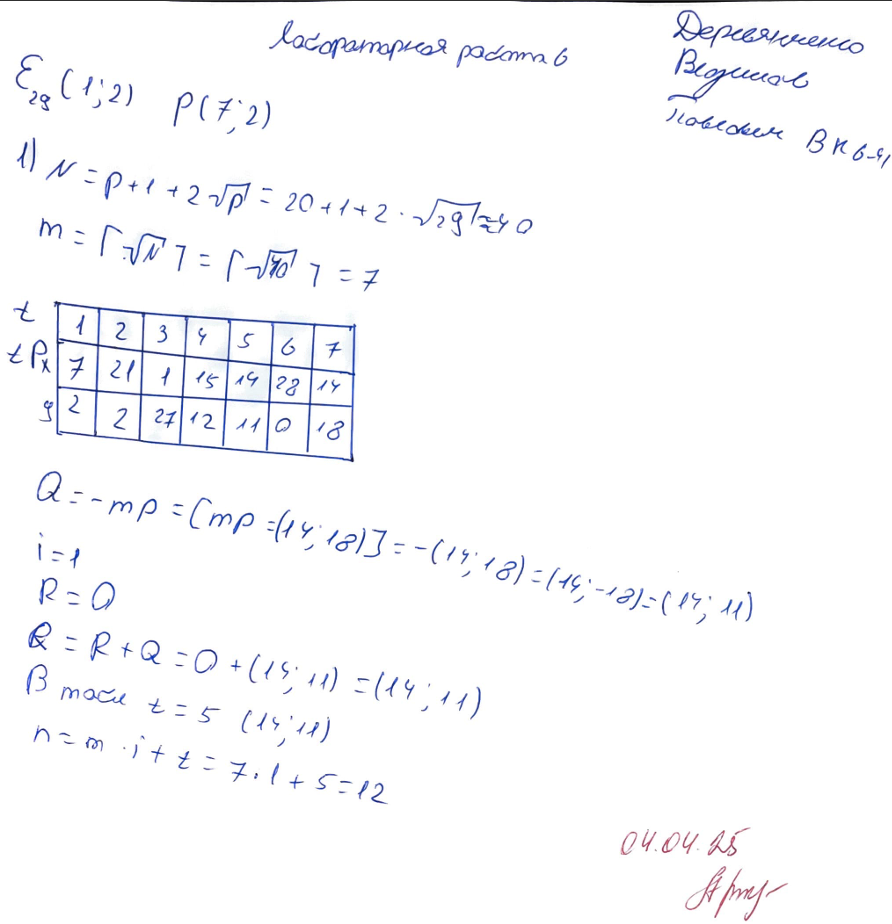 Лабораторная работа 6
Деревянченко
Вадимов
ВК6-41
E₂₉(1;2) P(7;2)
1) N = p+1+2√p = 20+1+2·√29 ≈ 40
m = ⌈√N⌉ = ⌈√40⌉ = 7
t 1 2 3 4 5 6 7
tPx 7 21 1 15 14 28 14
y 2 2 27 12 11 0 18
Q = -mp = [mp = (14;18)] = -(14;18) = (14;-18) = (14;11)
i=1
R = O
R = R + Q = O + (14;11) = (14;11)
В табл t = 5 (14;11)
n = m·i + t = 7·1 + 5 = 12
04.04.25